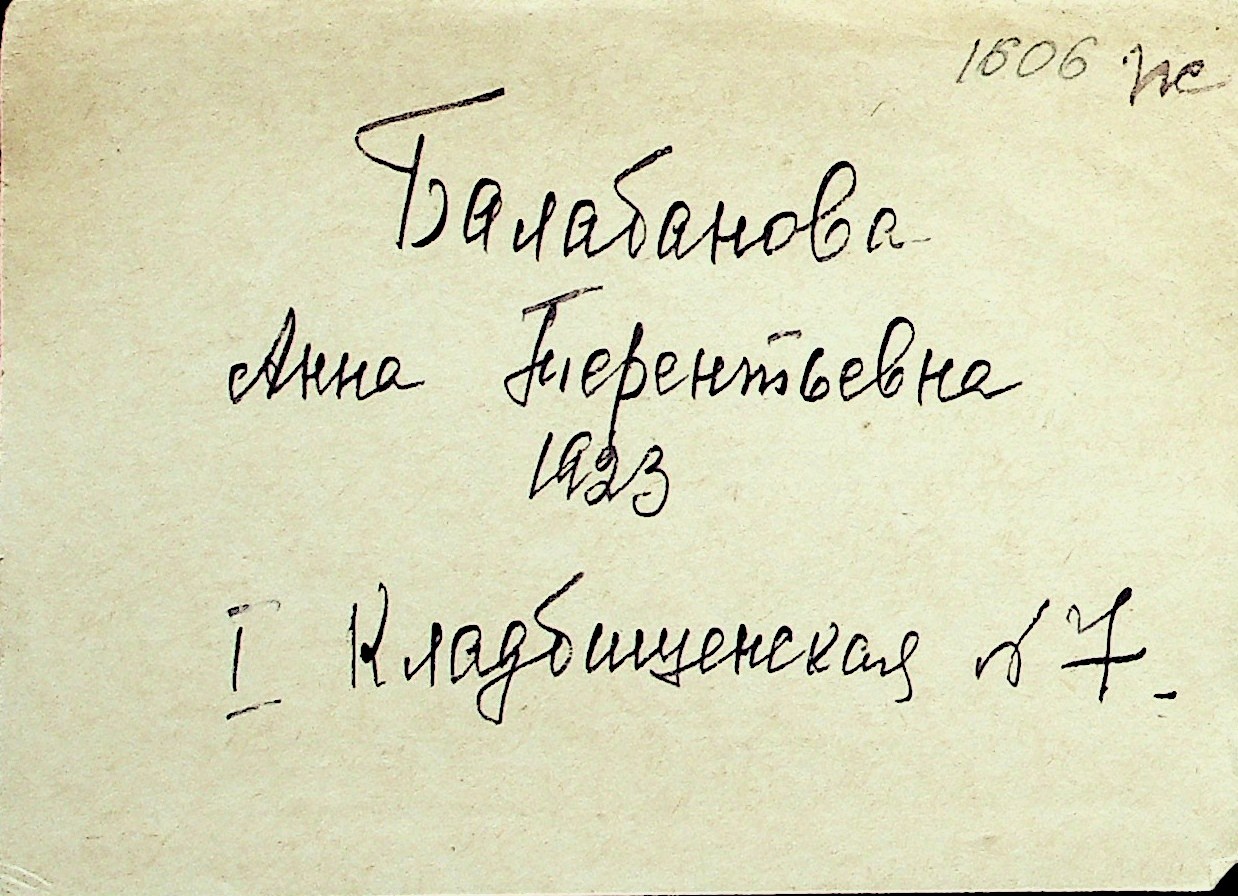 1606 ж
Балабанова
Анна Терентьевна
1923
I Кладбищенская № 7.